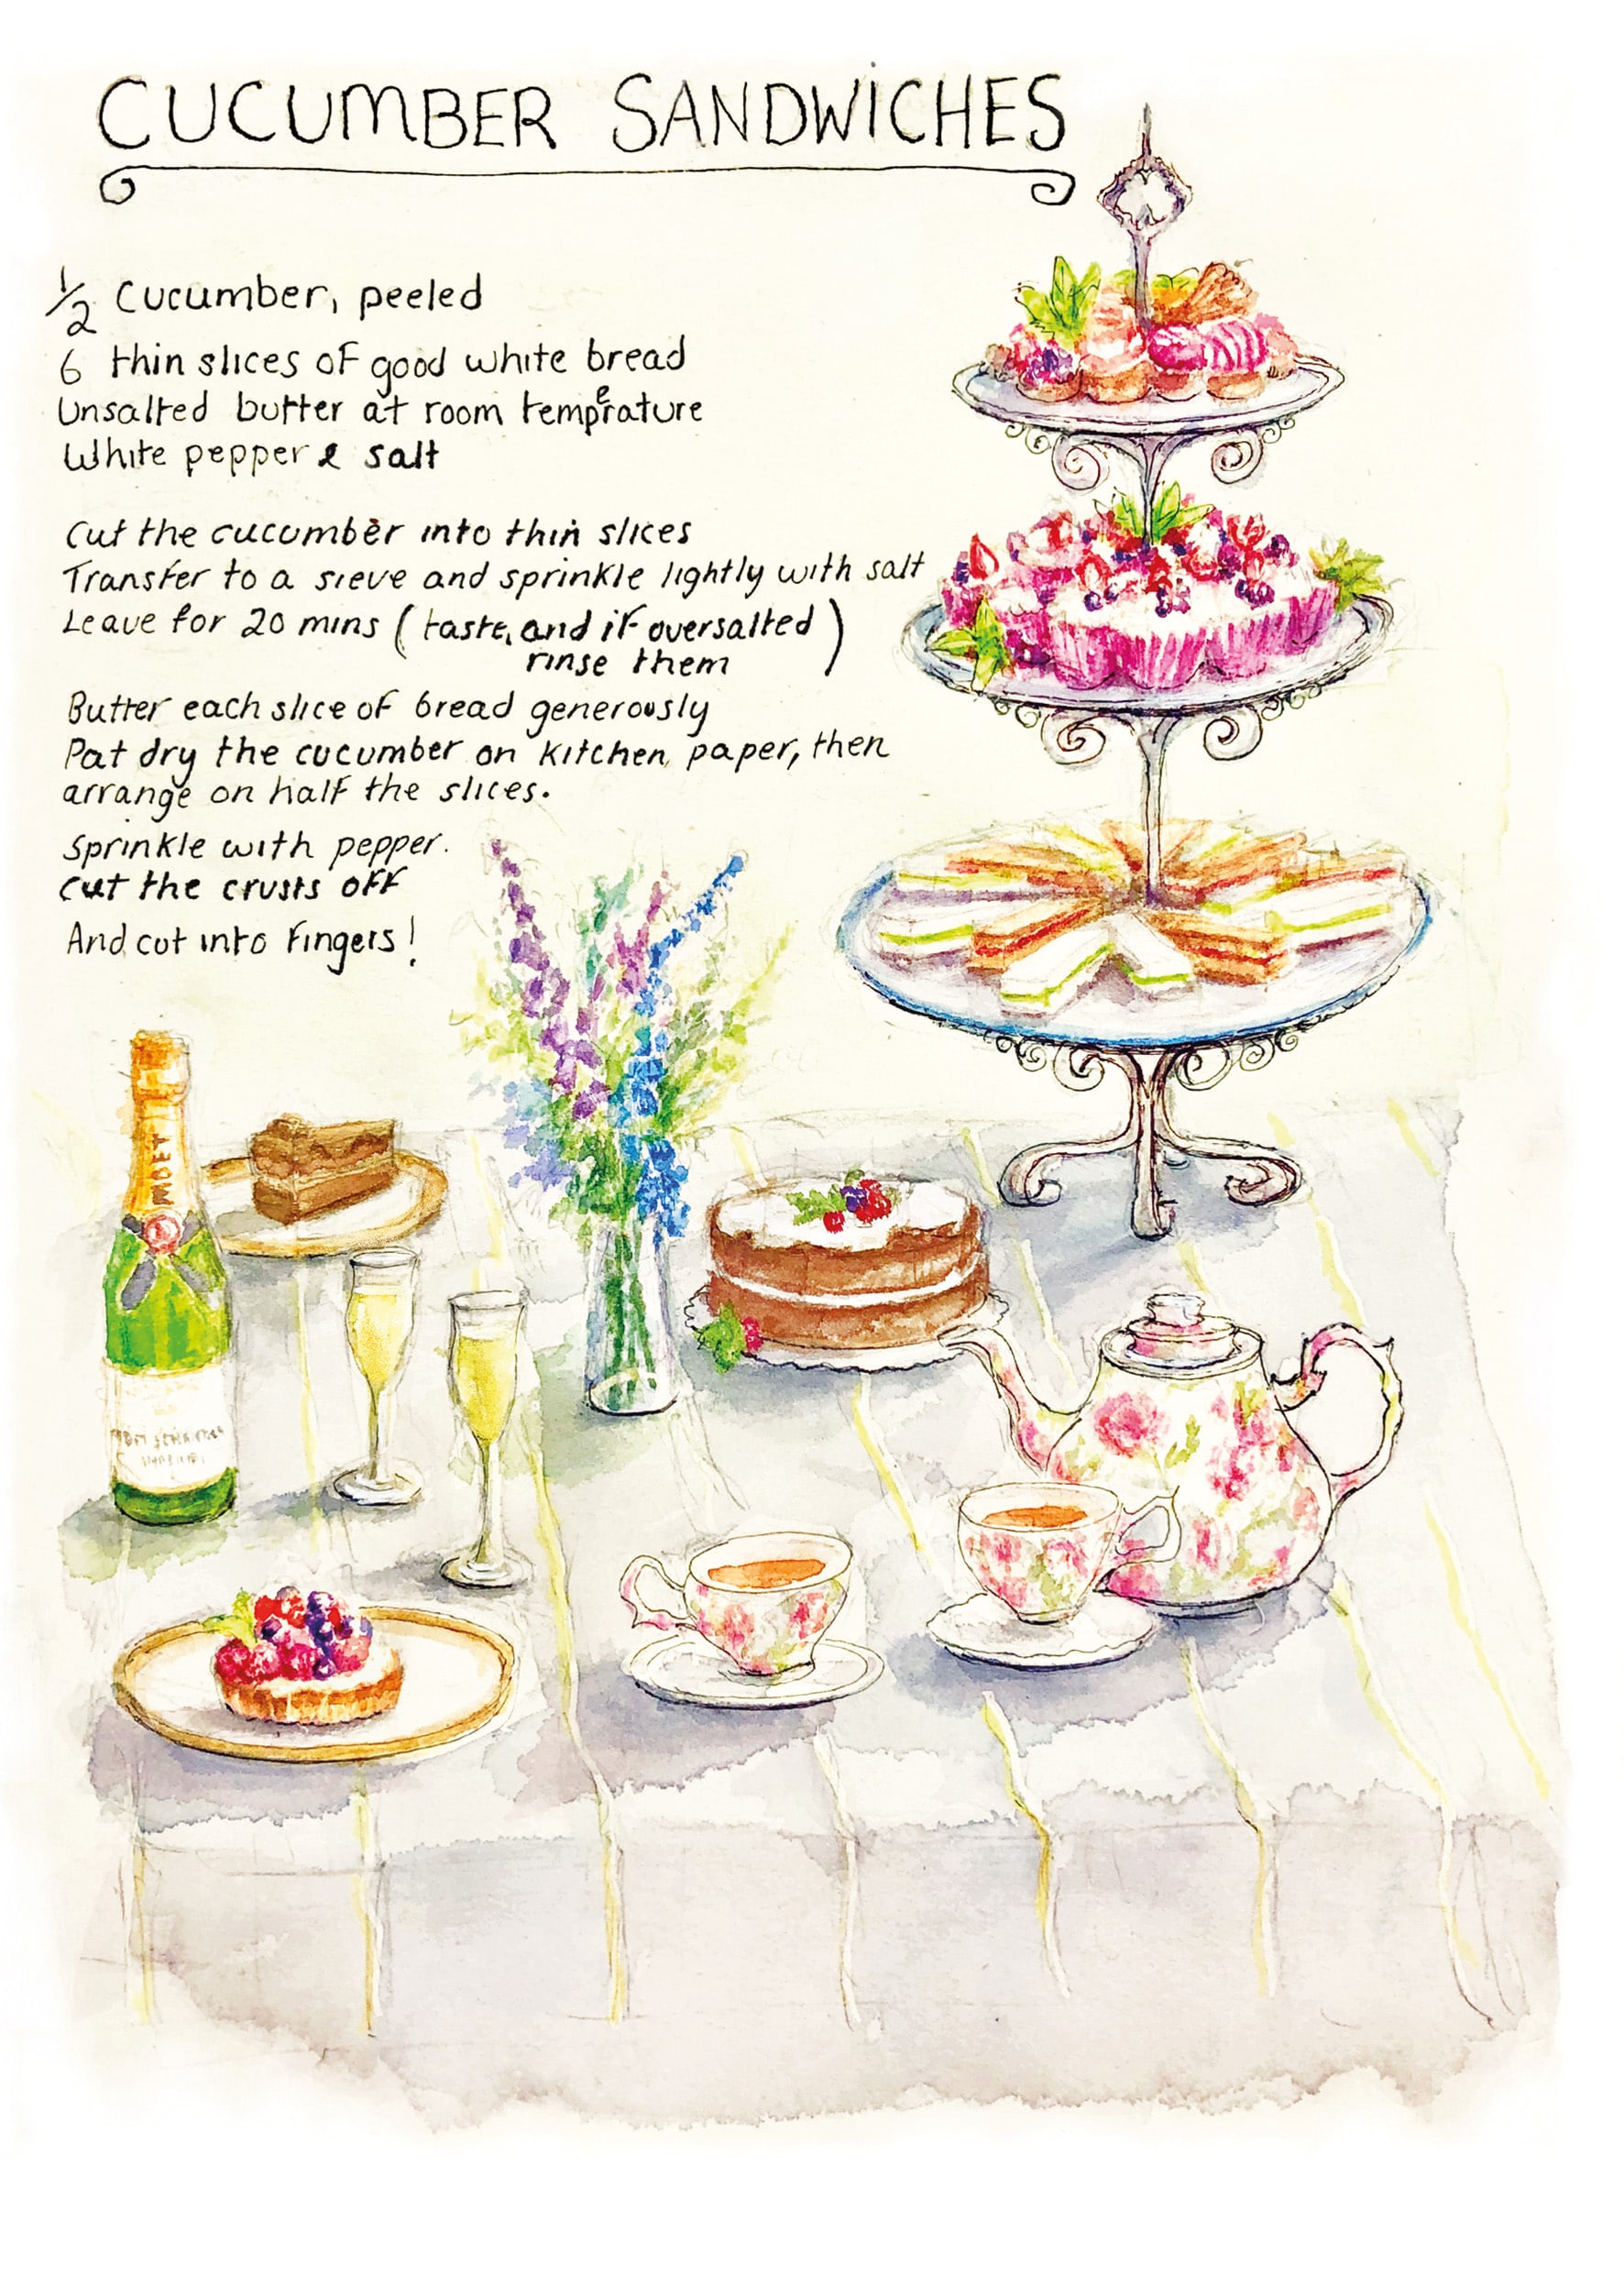 CUCUMBER SANDWICHES
1/2 Cucumber, peeled
6 thin slices of good white bread
Unsalted butter at room temperature
White pepper & salt
Cut the cucumber into thin slices
Transfer to a sieve and sprinkle lightly with salt
Leave for 20 mins (taste, and if oversalted
rinse them)
Butter each slice of bread generously
Pat dry the cucumber on kitchen paper, then
arrange on half the slices.
Sprinkle with pepper.
Cut the crusts off
And cut into fingers!
MOET